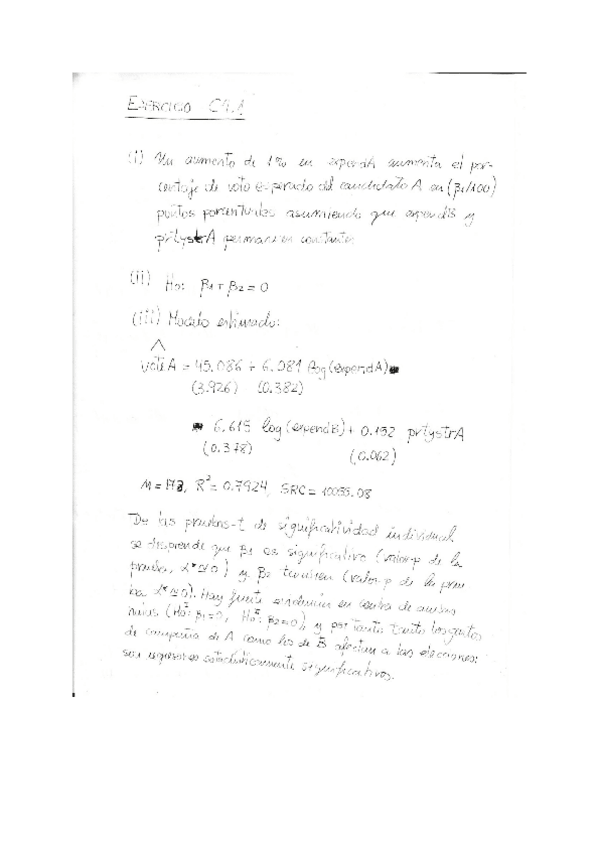 EJERCICIO C4.1
(i) Un aumento de 1% en expendA aumenta el por-
centaje de voto esperado del candidato A en (β1/100)
puntos porcentuales asumiendo que expendB y
prtystrA permanecen constantes.
(ii) Ho: β1 + β2 = 0
(iii) Modelo estimado:
voteA = 45.086 + 6.081 log(expendA)
(3.926) (0.382)
6.615 log(expendB) + 0.152 prtystrA
(0.378)
(0.062)
R² = 0.7924, SRC =
De las pruebas-t de significatividad individual
se desprende que β1 es significativo (valor-p de la
prueba, α* ≃ 0) y β2 también (valor-p de la prue
ba α* ≃ 0). Hay fuerte evidencia en contra de ambas
(Ho: β1=0, Ho: β2=0), y por tanto tanto los gastos
de campaña de A como los de B afectan a las elecciones:
son regresores estadísticamente significativos.